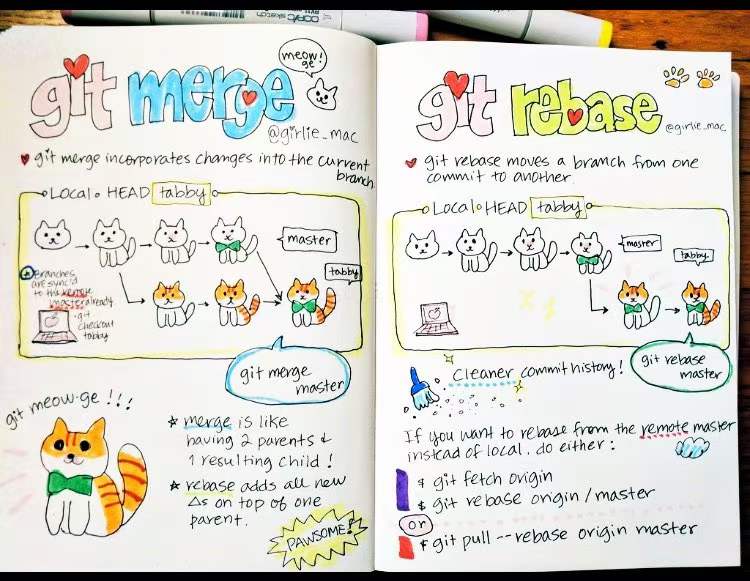 COPIC sketch
git merge
meow!
ge
@girlie_mac
git merge incorporates changes into the current
branch.
Local HEAD tabby
master
tabby
Branches
are sync'd
to the remote
master already
git
checkout
tabby
git merge
master
git meow-ge !!!
★ merge is like
having 2 parents &
1 resulting child!
★ rebase adds all new
Δs on top of one
parent.
PAWSOME!
git rebase
@girlie_mac
git rebase moves a branch from one
commit to another.
Local HEAD tabby
master
tabby
git rebase
master
Cleaner commit history!
If you want to rebase from the remote master
instead of local, do either:
$ git fetch origin
$ git rebase origin/master
or
$ git pull --rebase origin master